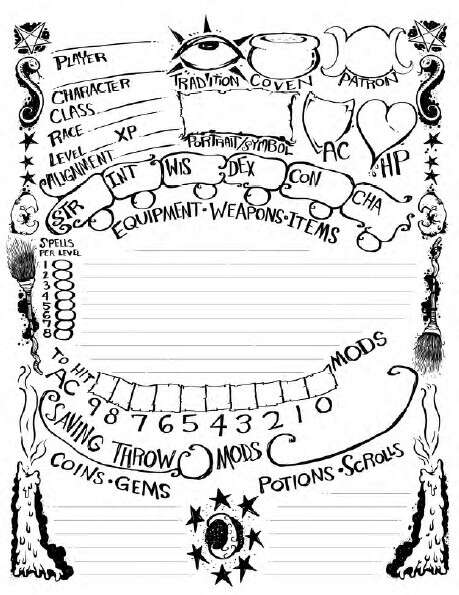 PLAYER
CHARACTER
CLASS
RACE
LEVEL XP
ALIGNMENT
TRADITION COVEN PATRON
PORTRAIT/SYMBOL
AC HP
STR INT WIS DEX CON CHA
EQUIPMENT · WEAPONS · ITEMS
SPELLS
PER LEVEL
1
2
3
4
5
6
7
8
TO HIT MODS
AC 9 8 7 6 5 4 3 2 1 0
SAVING THROW MODS
COINS · GEMS
POTIONS · SCROLLS